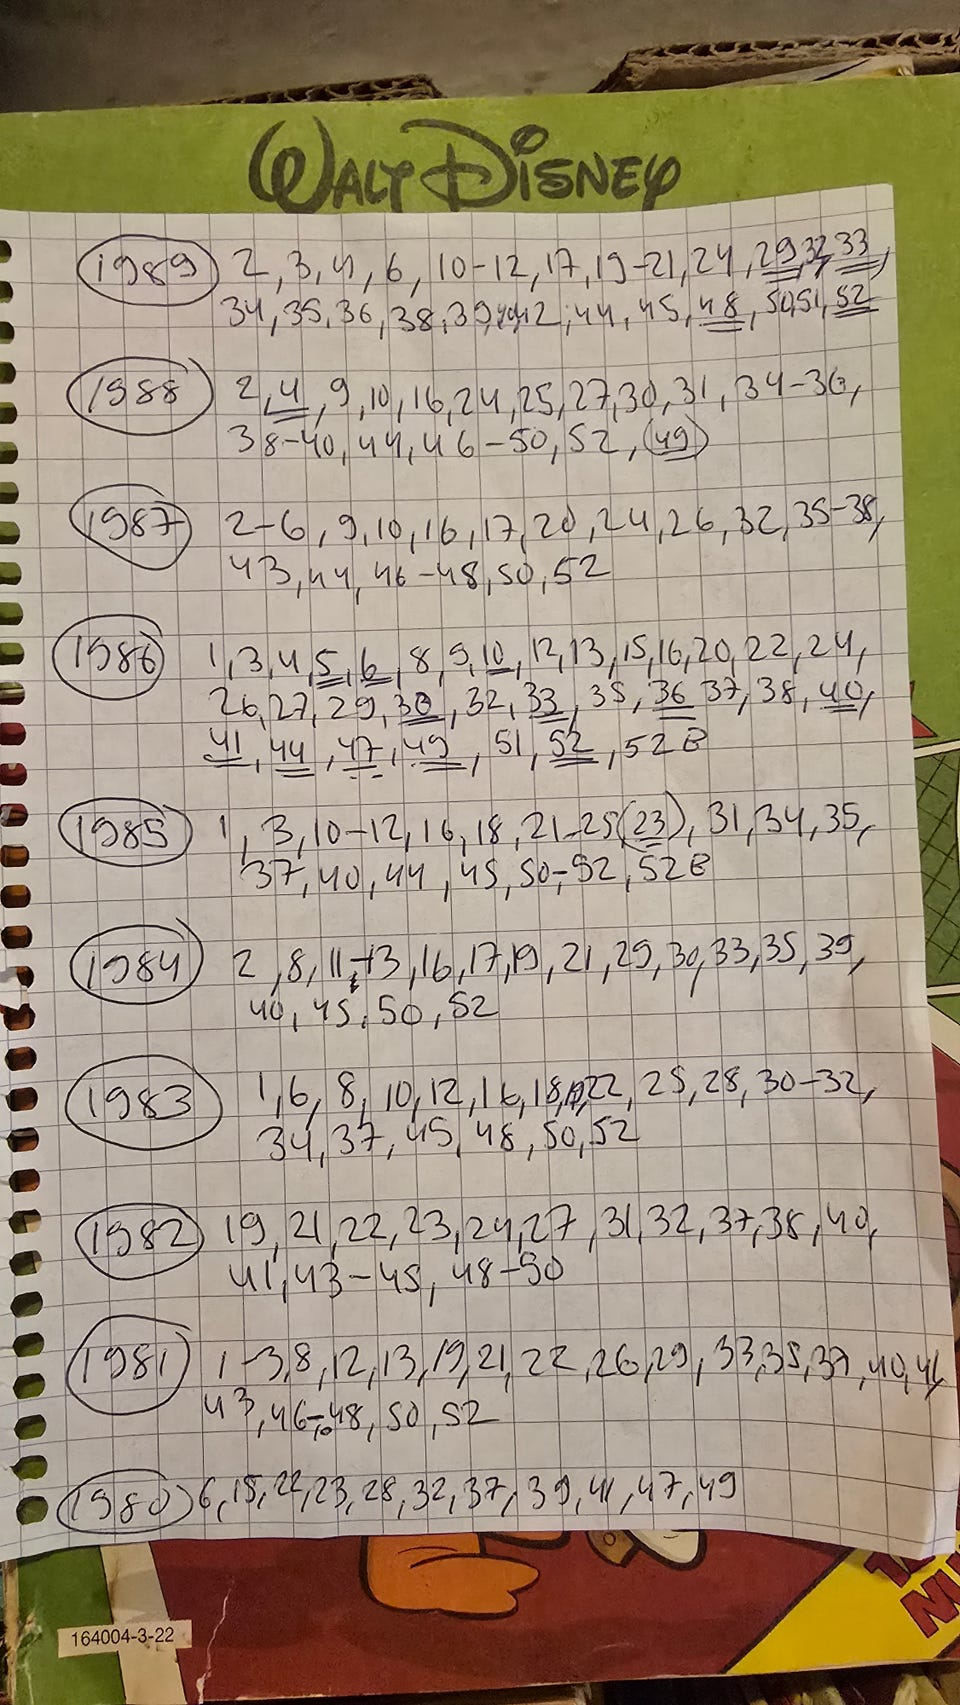 WALT DISNEY
1989 2, 3, 4, 6, 10-12, 17, 19-21, 24, 29, 32, 33,
34, 35, 36, 38, 39, 42, 44, 45, 48, 50, 51, 52
1988 2, 4, 9, 10, 16, 24, 25, 27, 30, 31, 34-36,
38-40, 44, 46-50, 52, (49)
1987 2-6, 9, 10, 16, 17, 20, 24, 26, 32, 35-38,
43, 44, 46-48, 50, 52
1986 1, 3, 4, 5, 6, 8, 9, 10, 12, 13, 15, 16, 20, 22, 24,
26, 27, 29, 30, 32, 33, 35, 36 37, 38, 40,
41, 44, 47, 49, 51, 52, 52B
1985 1, 3, 10-12, 16, 18, 21-25(23), 31, 34, 35,
37, 40, 44, 45, 50-52, 52B
1984 2, 8, 11-13, 16, 17, 19, 21, 29, 30, 33, 35, 39,
40, 45, 50, 52
1983 1, 6, 8, 10, 12, 16, 18, 22, 25, 28, 30-32,
34, 37, 45, 48, 50, 52
1982 19, 21, 22, 23, 24, 27, 31, 32, 37, 38, 40,
41, 43-45, 48-50
1981 1-3, 8, 12, 13, 19, 21, 22, 26, 29, 33, 35, 37, 40, 41,
43, 46-48, 50, 52
1980 6, 15, 22, 23, 28, 32, 37, 39, 41, 47, 49
164004-3-22